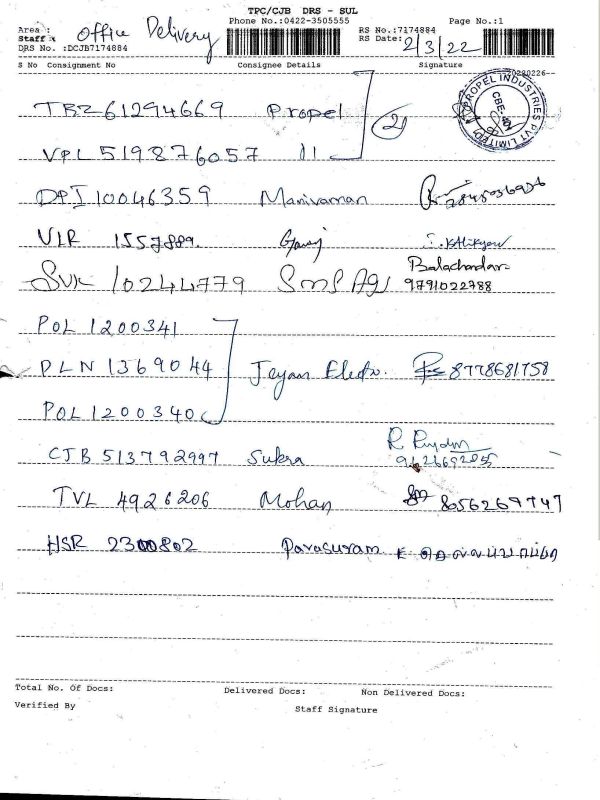 TPC/CJB DRS - SUL
Phone No.:0422-3505555 Page No.:1
Area : Office Delivery RS No.:7174884
Staff : RS Date: 2/3/22
DRS No. :DCJB7174884
S No Consignment No Consignee Details Signature
PROPEL INDUSTRIES PVT LIMITED CBE.
TRZ 61294669 Propel
(2)
VPL 519876057 11
DPI 10046359 Manivannan
VLR 1557889.
SVK 10244779 SMS Balachandar 9791022788
POL 1200341
DLN 1369044 Jeyam Electro. 8778681758
POL 1200340
CJB 513792997 Sukra
TVL 4926206 Mohan 8056269747
HSR 2300802 Parasuram
Total No. Of Docs: Delivered Docs: Non Delivered Docs:
Verified By Staff Signature